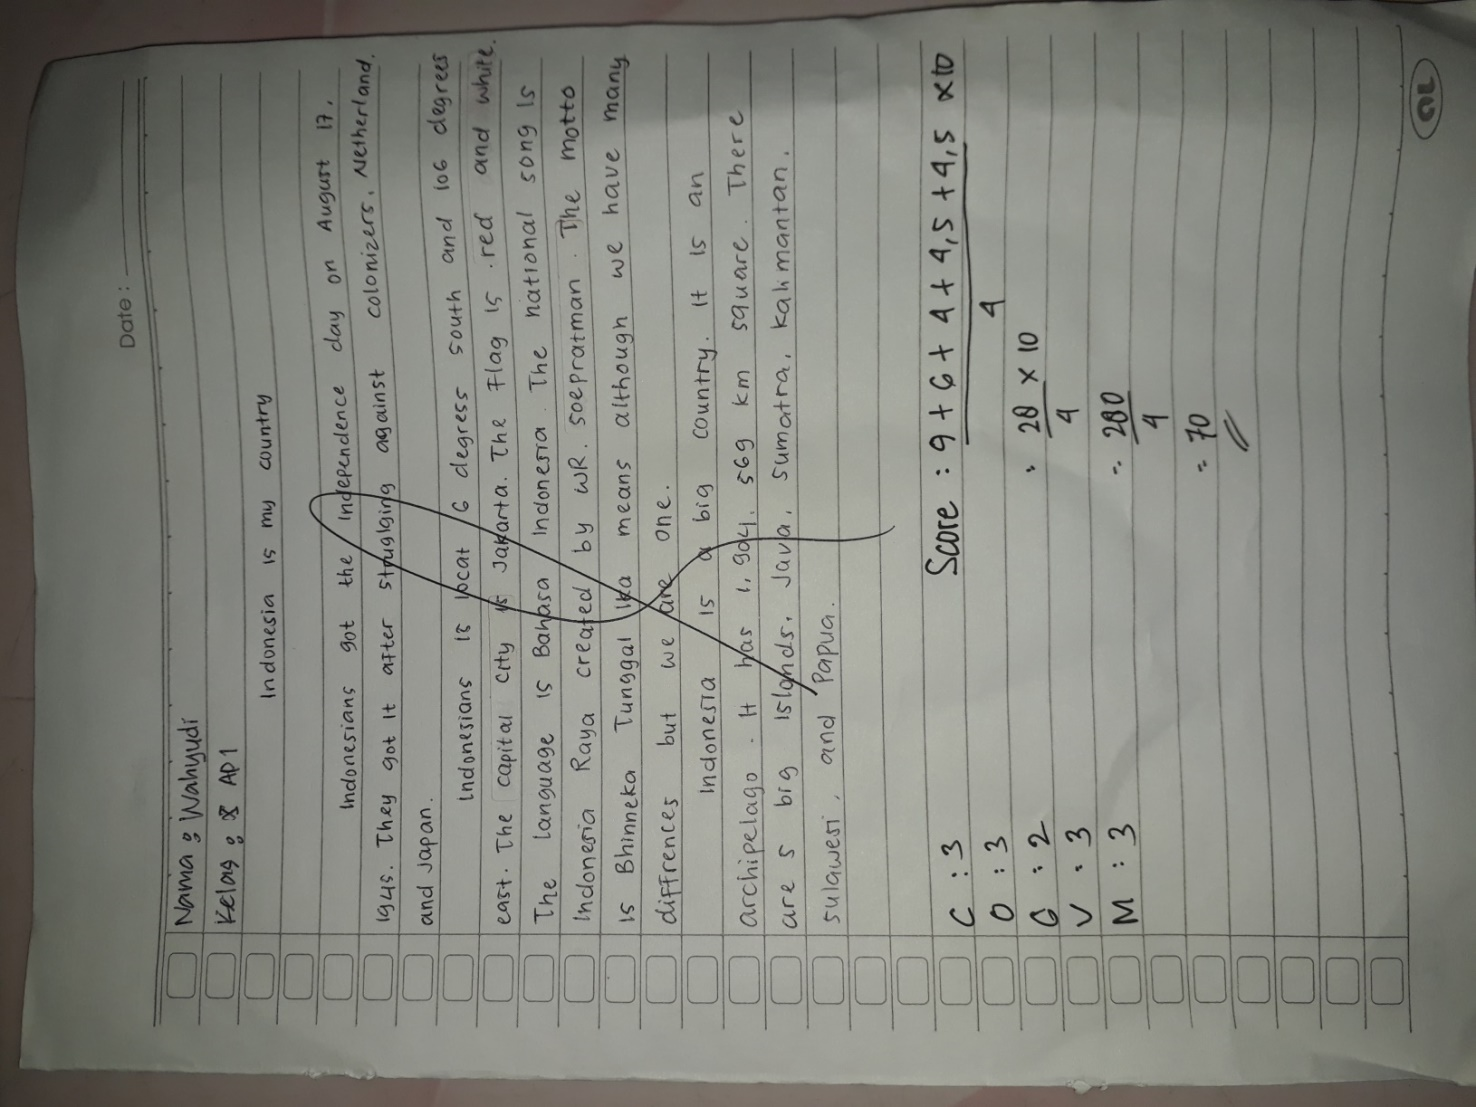 Date:
Nama : Wahyudi
Kelas : X AP1
Indonesia is my country
Indonesians got the Independence day on August 17,
1945. They got it after struglging against colonizers, Netherland.
and Japan.
Indonesians is locat 6 degress south and 106 degrees
east. The capital city is Jakarta. The Flag is red and white.
The language is Bahasa Indonesia. The national song is
Indonesia Raya created by WR. Soepratman. The motto
is Bhinneka Tunggal Ika means although we have many
diffrences but we are one.
Indonesia is a big country. It is an
archipelago. It has 1,904,569 km square. There
are 5 big islands. Java, Sumatra, Kalimantan.
Sulawesi, and Papua.
C : 3
O : 3
G : 2
V : 3
M : 3
Score : 9 + 6 + 4 + 4,5 + 4,5 x 10
4
= 28 x 10
4
= 280
4
= 70